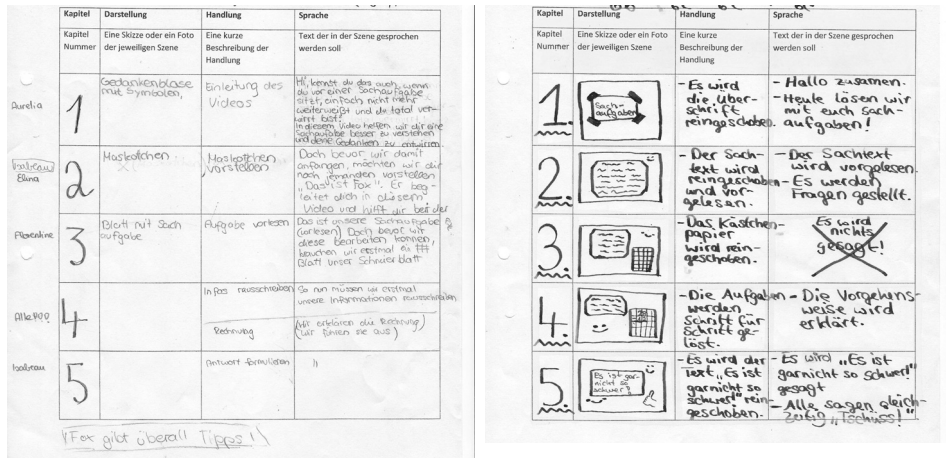 Kapitel Darstellung Handlung Sprache
Kapitel Nummer
Eine Skizze oder ein Foto der jeweiligen Szene
Eine kurze Beschreibung der Handlung
Text der in der Szene gesprochen werden soll
Aurelia
1
Gedankenblase
mit Symbolen,
Einleitung des
Videos
Hi, kennst du das auch, wenn
du vor einer Sachaufgabe
sitzt, einfach nicht mehr
weiterweißt und die total ver-
wirrt bist?
In diesem Video helfen wir dir eine
Sachaufgabe besser zu verstehen
und deine Gedanken zu entwirren
Isabeau
Elina
2
Maskottchen
Maskottchen
vorstellen
Doch bevor wir damit
anfangen, möchten wir dir
noch jemanden vorstellen
"Das ist Fox". Er beg-
leitet dich in diesem
Video und hilft dir bei der
Florentine
3
Blatt mit Sach
aufgabe
Aufgabe vorlesen
Das ist unsere Sachaufgabe
(vorlesen) Doch bevor wir
diese bearbeiten können,
brauchen wir erstmal ein
Blatt unser Schmierblatt
Alle
4
Infos rausschreiben
So nun müssen wir erstmal
unsere Informationen rausschreiben
Rechnung
(Wir erklären die Rechnung)
(wir führen sie aus)
Isabeau
5
Antwort formulieren
"
!Fox gibt überall Tipps!
Kapitel Darstellung Handlung Sprache
Kapitel Nummer
Eine Skizze oder ein Foto der jeweiligen Szene
Eine kurze Beschreibung der Handlung
Text der in der Szene gesprochen werden soll
1.
Sach-
aufgaben
- Es wird
die Über-
schrift
reingeschoben.
- Hallo zusammen.
- Heute lösen wir
mit euch sach-
aufgaben!
2.
- Der Sach-
text wird
reingeschoben
und vor-
gelesen.
- Der Sachtext
wird vorgelesen.
- Es werden
Fragen gestellt.
3.
- Das Kästchen-
papier
wird rein-
geschoben.
Es wird
nichts
gesagt!
4.
- Die Aufgaben
werden
Schritt für
Schritt ge-
löst.
- Die Vorgehens-
weise wird
erklärt.
5.
Es ist gar-
nicht so
schwer!
- Es wird der
Text „Es ist
garnicht so
schwer!" rein-
geschoben.
- Es wird „Es ist
garnicht so schwer!"
gesagt
- Alle sagen gleich-
zeitig „Tschüss!"